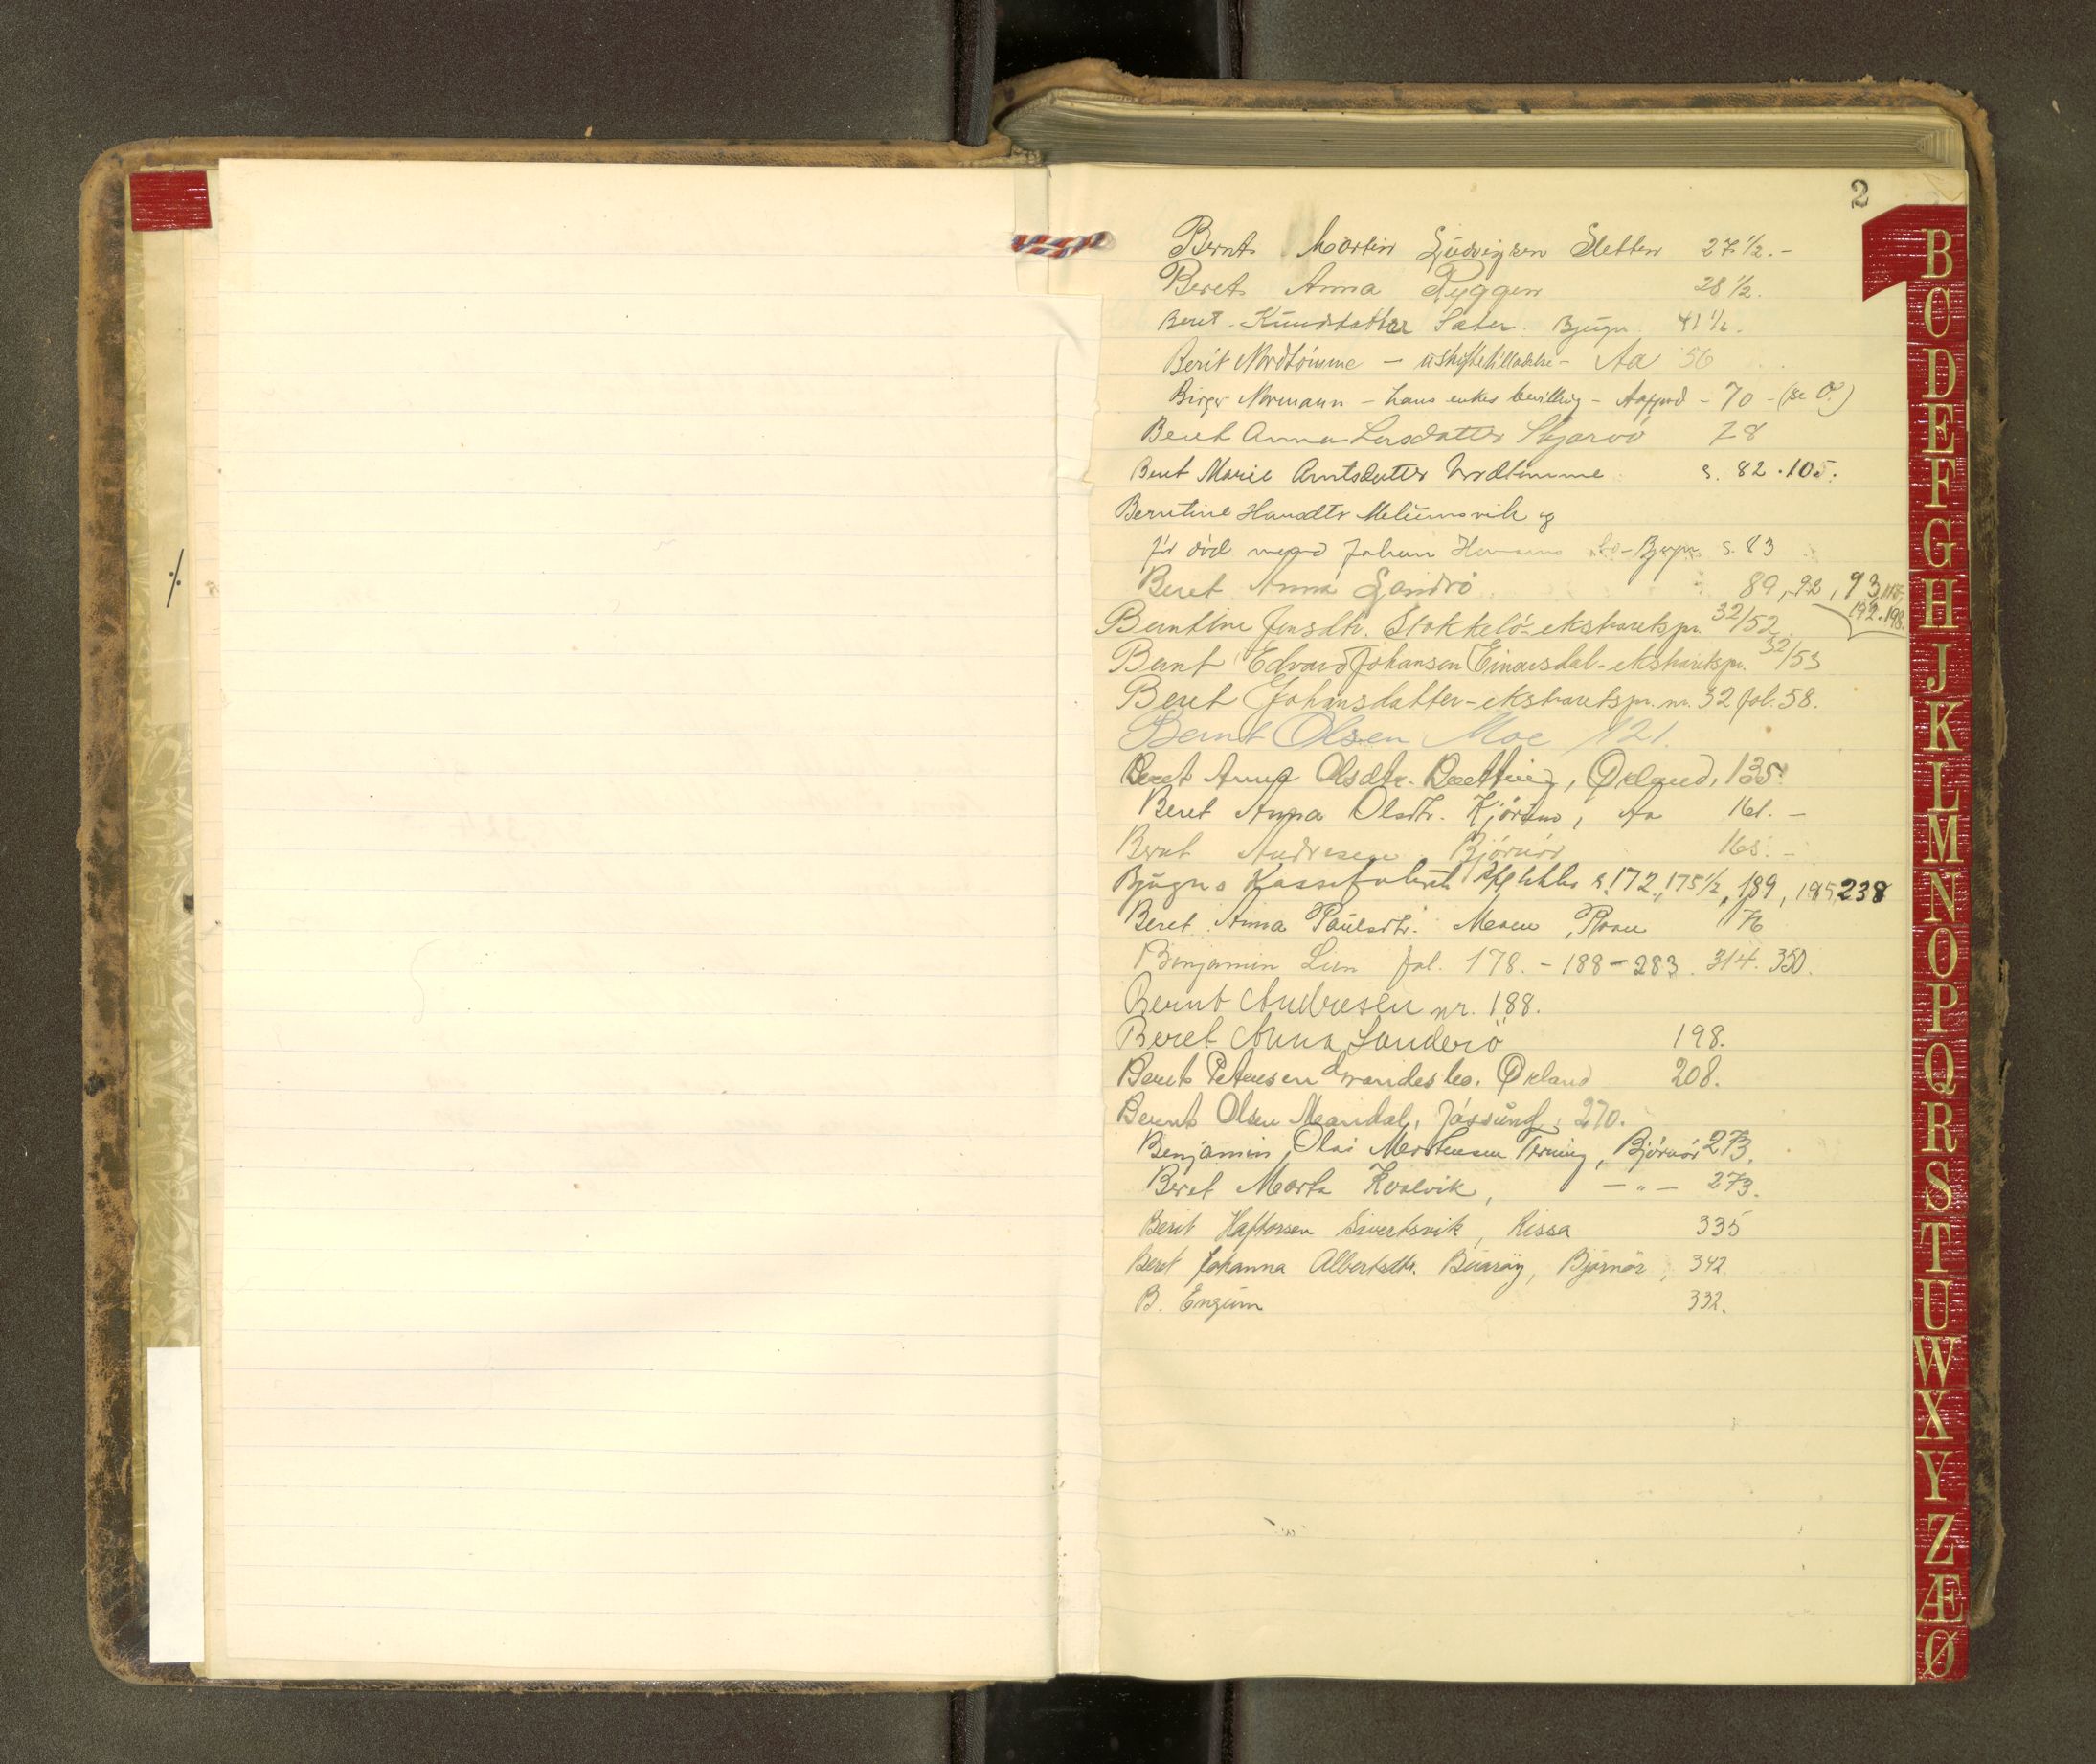 2
Bernt Martin Ludvigsen Sletten 27 1/2. -
Beret Anna Ryggen 28 1/2.
Beret Knudsdatter Sæter. Bjugn. 41 1/2.
Berit Nordtömme - uskiftetilladelse - Aa 56
Birger Normann - hans enkes bevilling - Aafjord - 70 - (se O.)
Beret Anna Larsdatter Skjærvö 78
Beret Marie Arntsdatter Nordtömme s. 82 . 105.
Berntine Hansdtr Melumsvik og
før död mand Johan s. 83
Beret Anna Landrö 89, 92, 93, 115,
192. 198.
Berntine Jensdtr. Stokkelö - ekstraretspr. 32/52
Bernt Edvard Johansen Einarsdal - ekstraretspr. 32/53
Beret Johansdatter - ekstraretspr. nr. 32 fol. 58.
Bernt Olsen Moe 121.
Beret Anna Olsdtr. Brettving, Ørland, 135.
Beret Anna Olsdtr. Kjöran, Aa 161. -
Bernt Andresen Björnör 165. -
Bjugns Kassefabrik s. 172, 175 1/2, 189, 195, 238
Beret Anna Paulsdtr. Moen, Roan 176
Benjamin Lien fol. 178. - 188 - 283. 314. 350.
Bernt Andresen nr. 188.
Beret Anna Landerö 198.
Bernt Petersen Ørland 208.
Bernt Olsen Mandal, Jössund, 270.
Benjamin Olai Mortensen Terning, Björnör 273.
Beret Marta Kvalvik, - " - 273.
Berit Haftorsen Sivertsvik, Rissa 335
Beret Johanna Albertsdtr. Buaröy, Björnör, 342
B. Engum 332.
B
C
D
E
F
G
H
J
K
L
M
N
O
P
Q
R
S
T
U
W
X
Y
Z
Æ
Ø